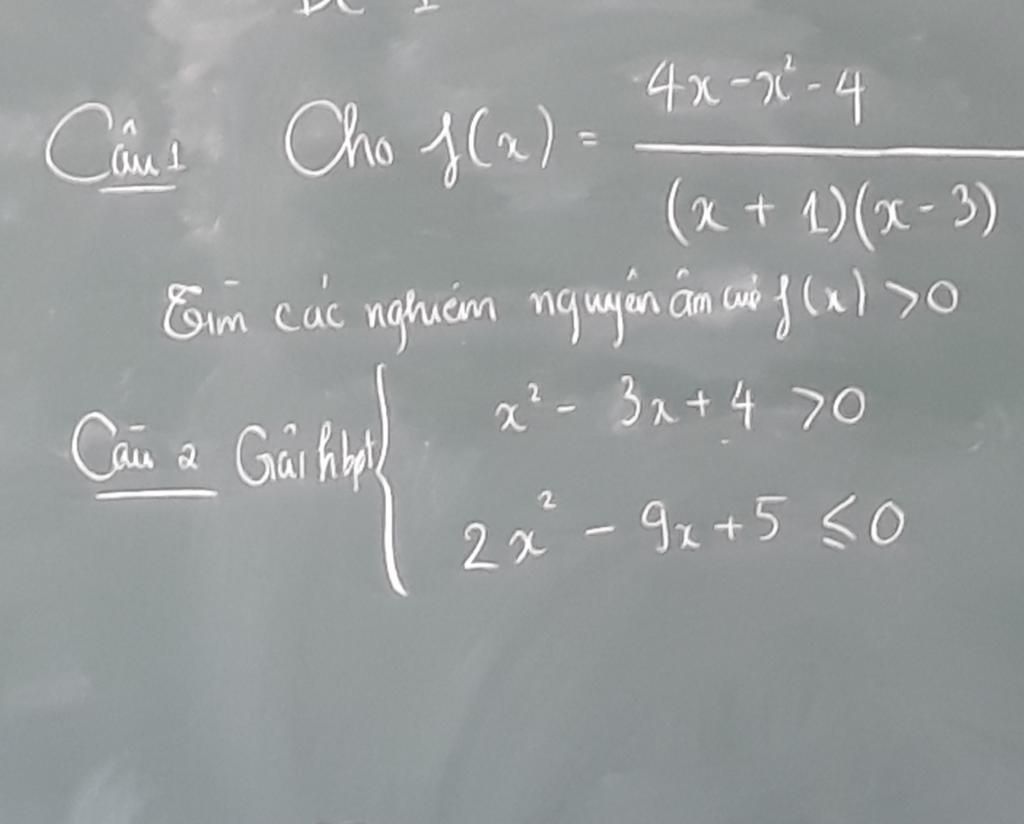 Câu 1 Cho f(x) = 4x - x² - 4 / (x + 1)(x - 3)
Tìm các nghiệm nguyên âm của f(x) > 0
Câu 2 Giải hbpt { x² - 3x + 4 > 0
2x² - 9x + 5 ≤ 0